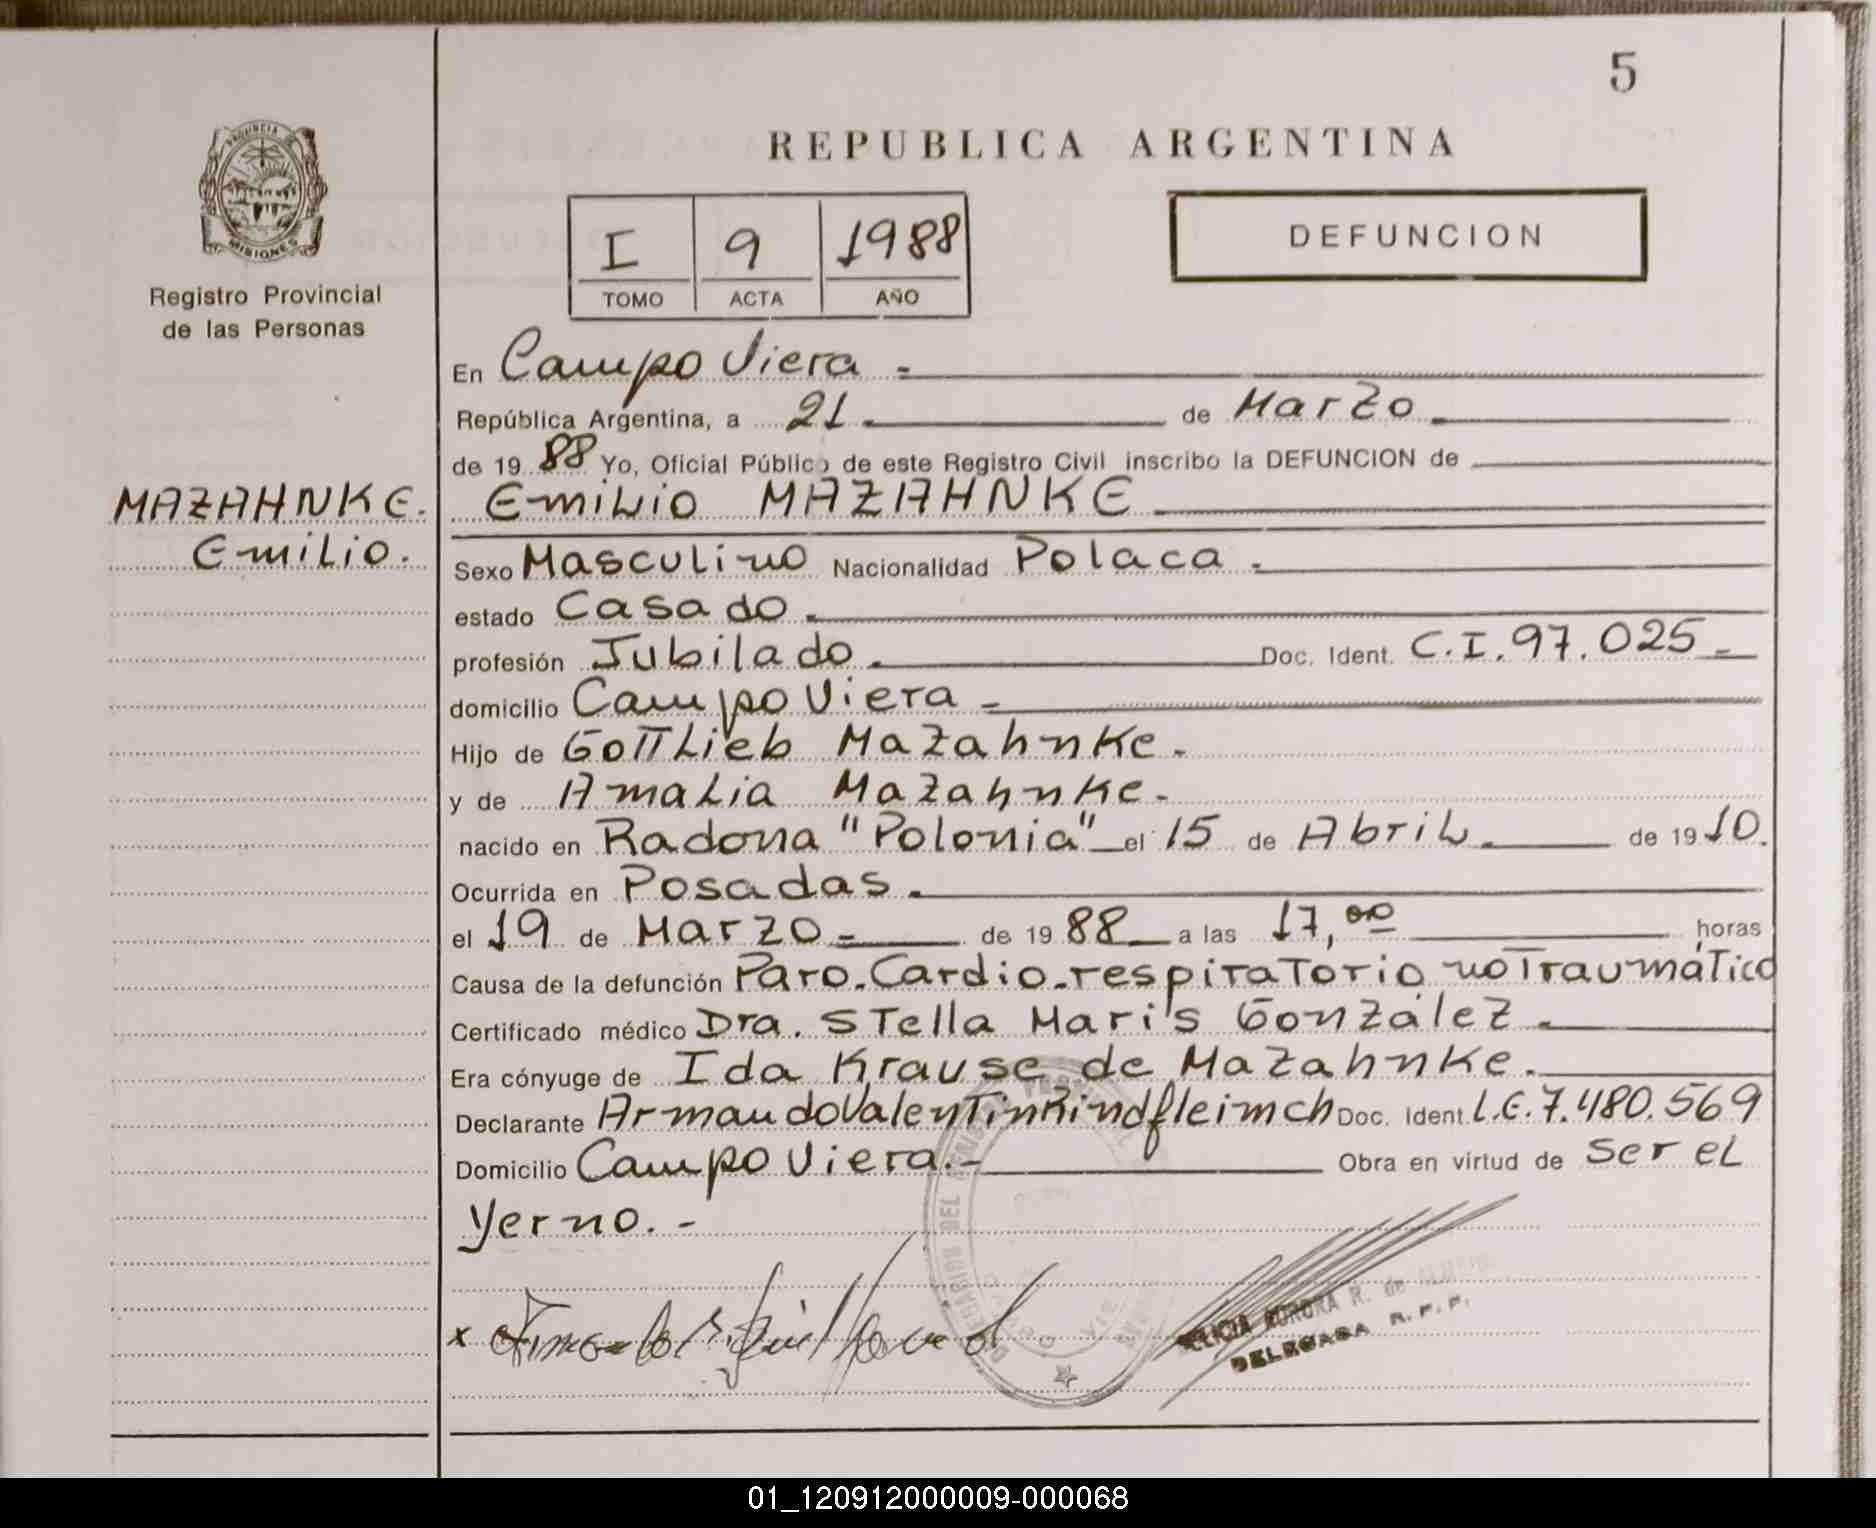 5
REPUBLICA ARGENTINA
PROVINCIA DE
MISIONES
Registro Provincial
de las Personas
I 9 1988
TOMO ACTA AÑO
DEFUNCION
En Campo Viera
República Argentina, a 21 de Marzo
de 19 88 Yo, Oficial Público de este Registro Civil inscribo la DEFUNCION de
MAZAHNKE.
Emilio.
Emilio MAZAHNKE
Sexo Masculino Nacionalidad Polaca
estado Casado
profesión Jubilado Doc. Ident. C.I. 97.025
domicilio Campo Viera
Hijo de Gottlieb Mazahnke.
y de Amalia Mazahnke.
nacido en Radona "Polonia" el 15 de Abril de 19 10.
Ocurrida en Posadas
el 19 de Marzo de 19 88 a las 17,00 horas
Causa de la defunción Paro-Cardio-respiratorio no Traumático
Certificado médico Dra. Stella Maris González
Era cónyuge de Ida Krause de Mazahnke.
Declarante Armando Valentin Rindfleimch Doc. Ident. L.E. 7.480.569
Domicilio Campo Viera.- Obra en virtud de ser el
Yerno.-
x
AURORA R. de
DELEGADA R. P. P.
01_120912000009-000068